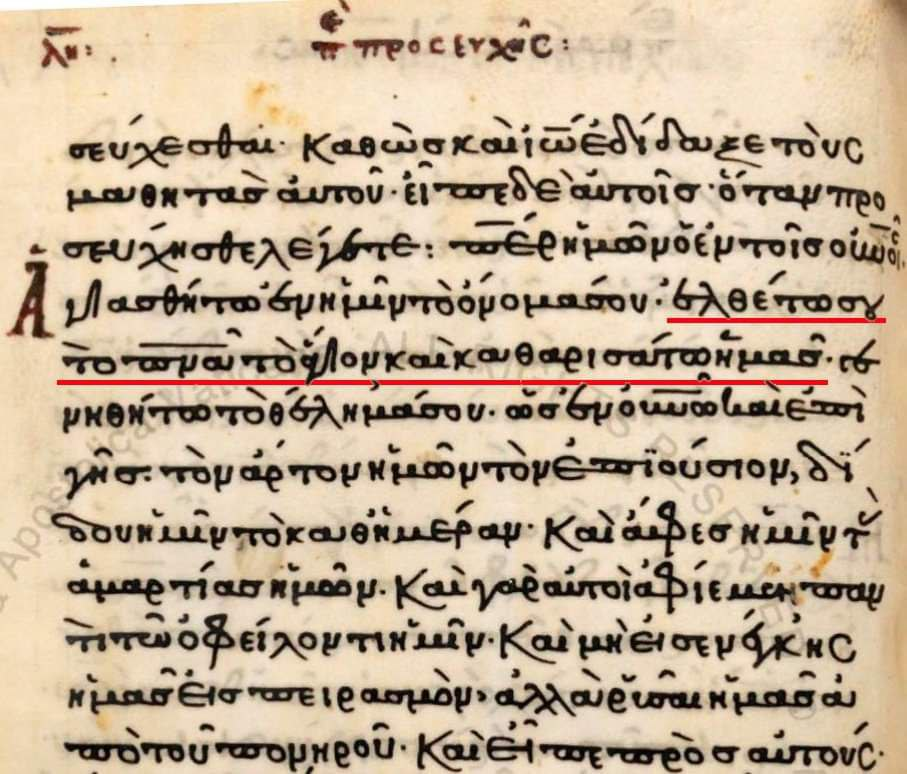 λη: πε προσευχῆς:
σεύχεσθαι· καθὼς καὶ ἰω̅ ἐδίδαξε τοὺς
μαθητὰς αὐτοῦ· εἶπε δὲ αὐτοῖς· ὅταν προ
σεύχησθε λέγετε: π̅ε̅ρ ἡμῶν ὁ ἐν τοῖς οὐνοῖς·
Ἁγιασθήτω ἐν ἡμῖν τὸ ὄνομά σου· ἐλθέτω σου
τὸ π̅ν̅α̅ τὸ ἅγιον καὶ καθαρισάτω ἡμᾶς· γε
νηθήτω τὸ θέλημά σου· ὡς ἐν ο̅υ̅ν̅ῶ καὶ ἐπὶ
γῆς· τὸν ἄρτον ἡμῶν τὸν ἐπϊούσιον, δί
δου ἡμῖν τὸ καθἡμέραν· Καὶ ἄφες ἡμῖν τὰς
ἁμαρτίας ἡμῶν· Καὶ γὰρ αὐτοὶ ἀφίεμεν παν
τὶ τῶ ὀφείλοντι ἡμῖν· Καὶ μὴ εἰσενέγκης
ἡμᾶς εἰς πειρασμὸν, ἀλλὰ ῥῦσαι ἡμᾶς ἀ
πὸ τοῦ πονηροῦ· Καὶ εἶπε πρὸς αὐτούς·